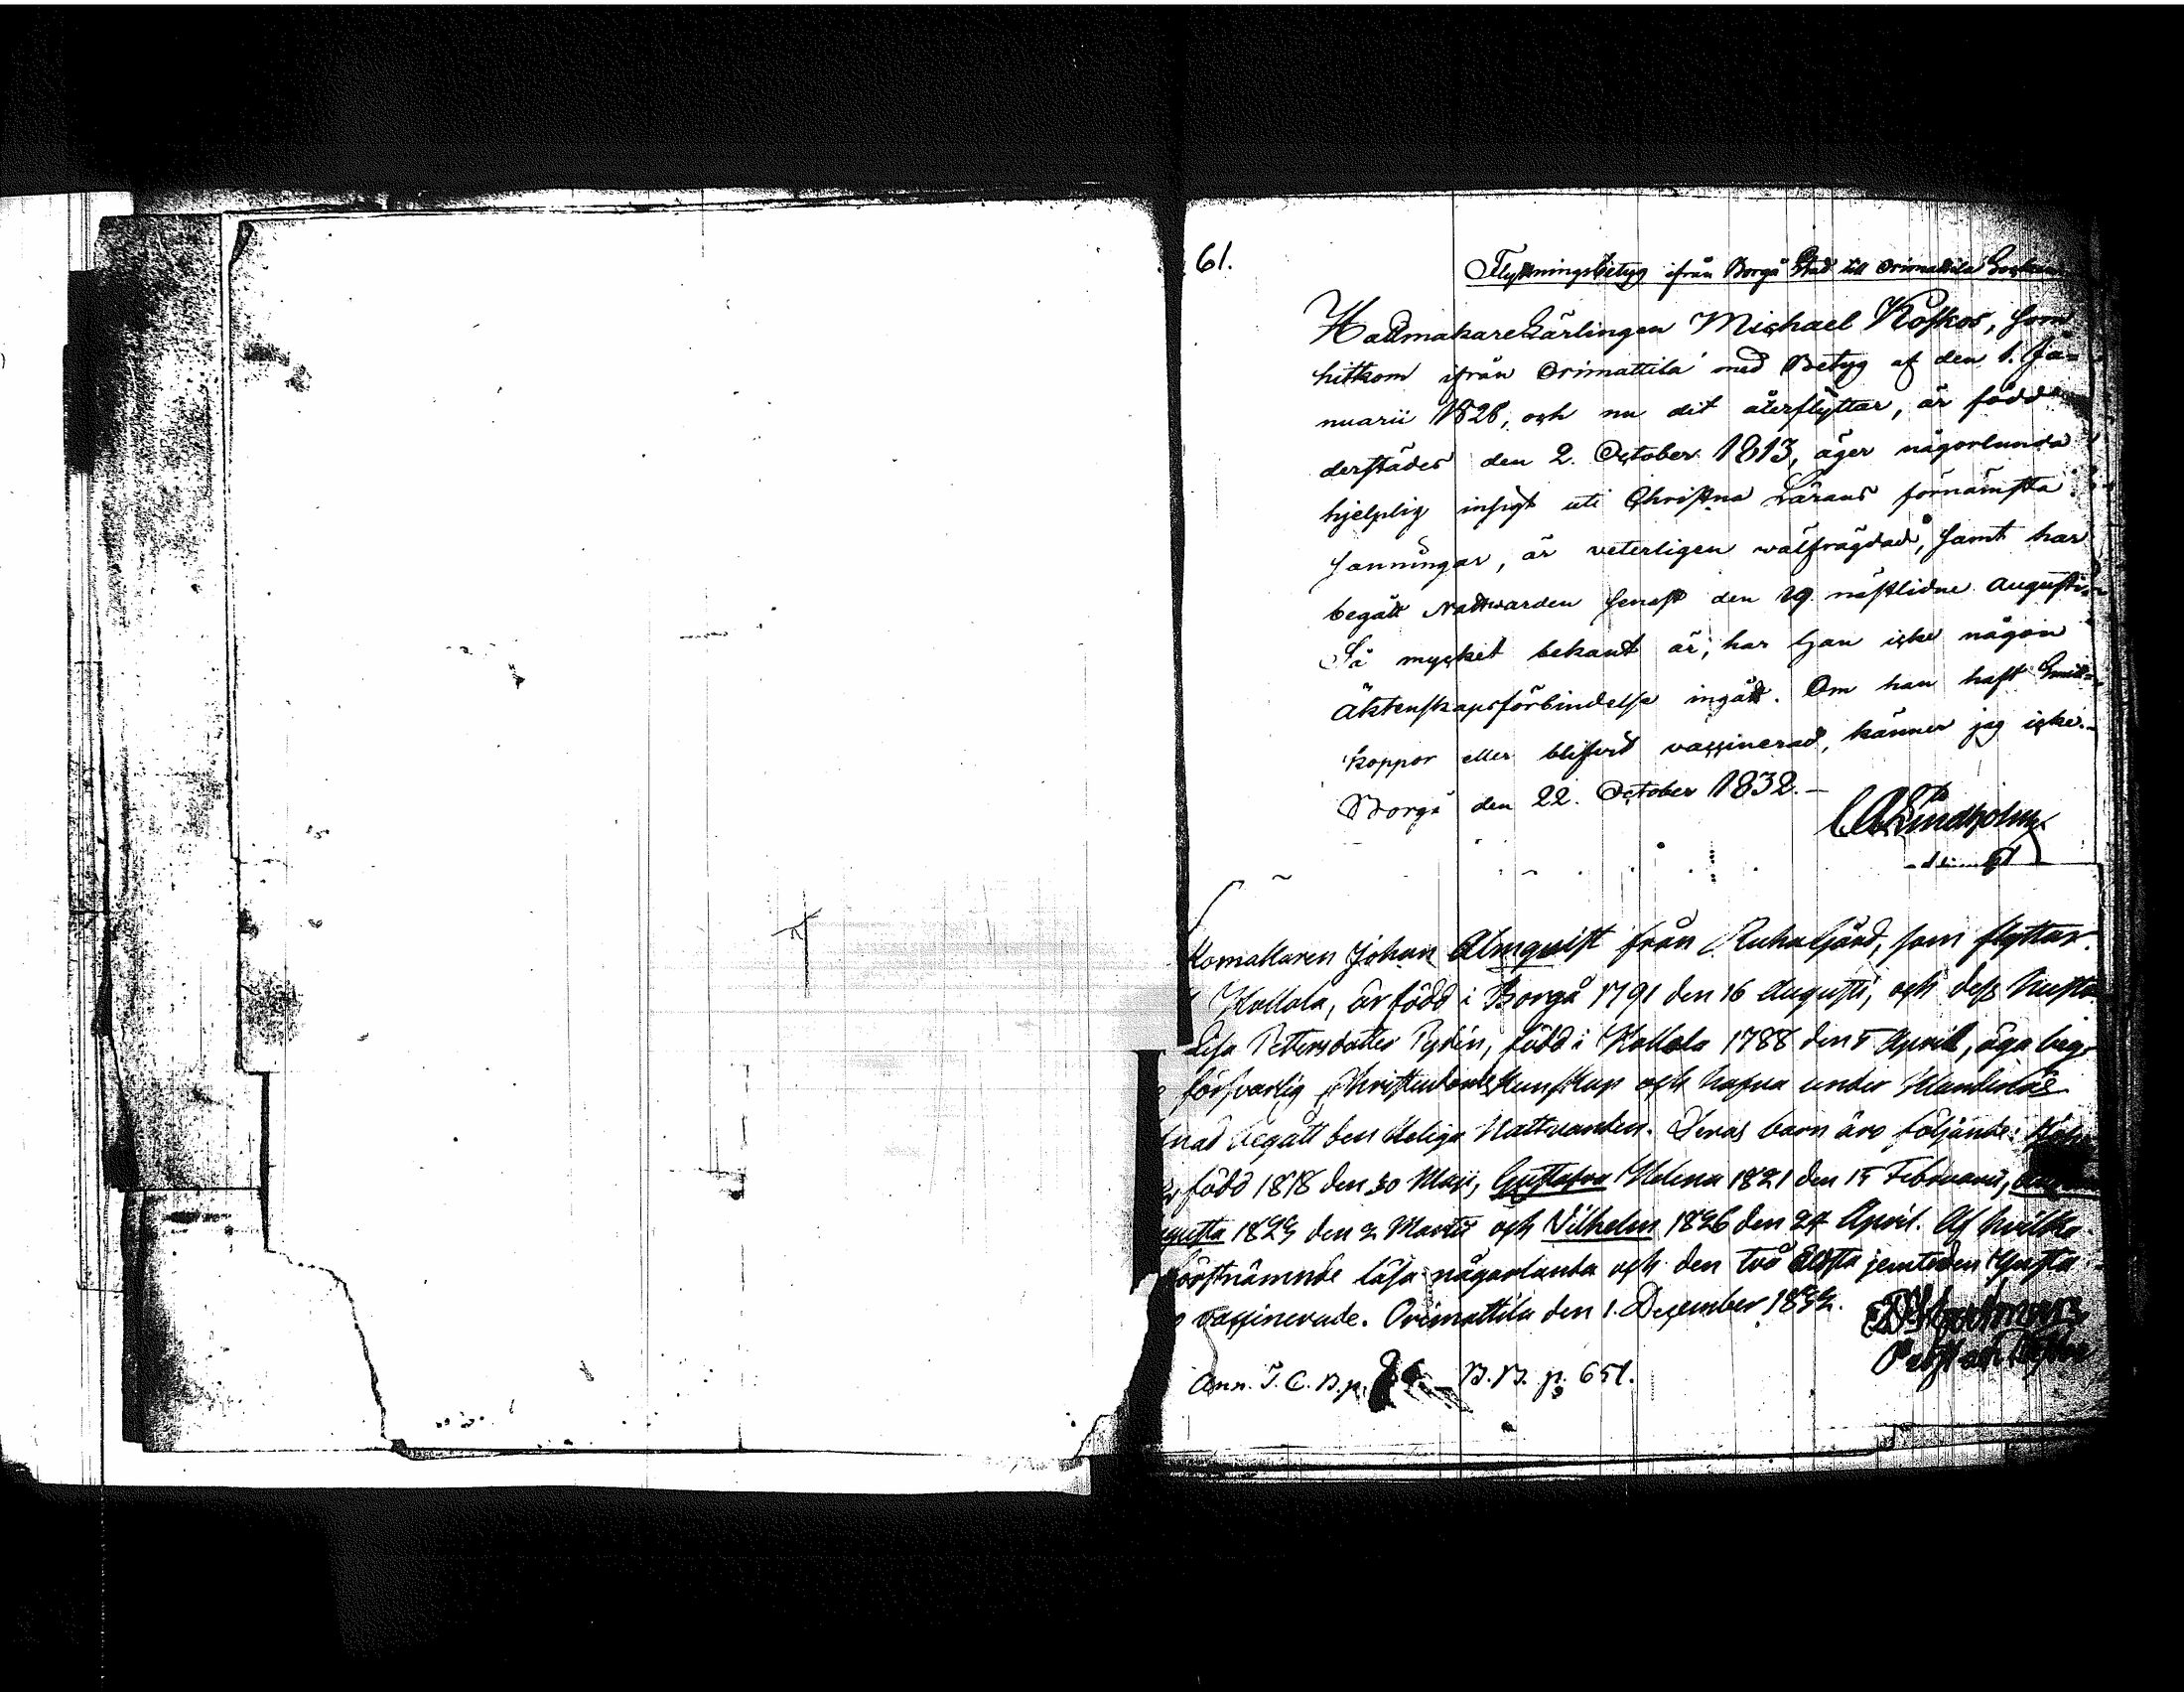 61.
Flyttningsbetyg ifrån Borgå Stad till Orimattila Socken
HattmakareLärlingen Michael Koskos, som
hitkom ifrån Orimattila med Betyg af den 1. Ja=
nuarii 1828, och nu dit återflyttar, är född
derstädes den 2. October 1813, äger någorlunda
hjelplig insigt uti Christna Lärans förnämsta
sanningar, är veterligen wälfrägdad, samt har
begått Nattwarden senast den 19. nästlidne Augusti.
Så mycket bekant är, har han icke någon
Äktenskapsförbindelse ingått. Om han haft
koppor eller blifvit vaccinerad, känner jag icke.
Borgå den 22. October 1832.—
Lindholm
komakaren Johan Almqvist från Ruha Gård, som flyttar
Hollola, är född i Borgå 1791 den 16 Augusti, och dess hustru
Lisa Pettersdotter född i Hollola 1788 den 5 April, äga
försvarlig Christendoms kunskap och hafva under
begått den Heliga Nattvarden. Deras barn äro följande:
född 1818 den 30 Maji, Gustafva Helena 1821 den 15 Februarii,
gusta 1823 den 2 Martii och Vilhelm 1826 den 24 April. Af hvilka
förstnämnde läsa någorlunda och den två äldsta jemte den
vaccinerade. Orimattila den 1. December 1832.
Ann. I. C. B. p. B.B. p. 651.